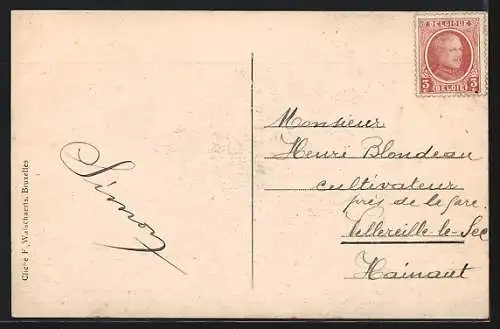 BELGIQUE
5 5
BELGIË
Monsieur
Henri Blondeau
cultivateur
près de la gare
Vellereille-le-Sec
Hainaut
Simon
Cliché F. Walschaerts, Bruxelles